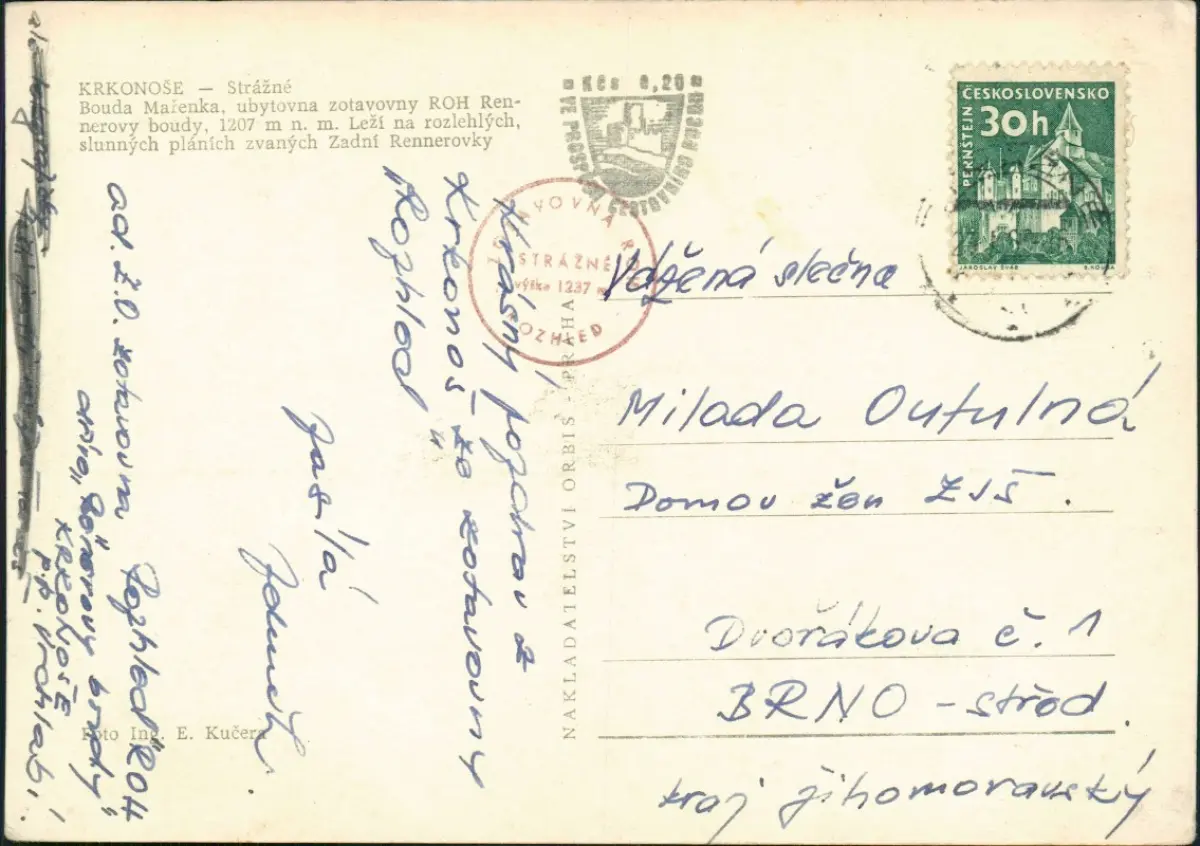 KRKONOŠE — Strážné
Bouda Mařenka, ubytovna zotavovny ROH Ren-
nerovy boudy, 1207 m n. m. Leží na rozlehlých,
slunných pláních zvaných Zadní Rennerovky
Kčs 0,20
VE PROSPĚCH CESTOVNÍHO RUCHU
ČESKOSLOVENSKO
30h
PERNŠTEJN
JAROSLAV ŠVÁB
STRÁŽNÉ
výška 1237 m
ROZHLED
Krásný pozdrav z
Krkonoš – ze zotavovny
„Rozhled“
zasílá
ad. Ž.D. zotavovna „Rozhled“ ROH
KRKONOŠE
p.p. Vrchlabí.
Vážená slečna
Milada Outulná
Domov žen ZJŠ.
Dvořákova č. 1
BRNO – střed.
kraj jihomoravský
NAKLADATELSTVÍ ORBIS - PRAHA
Foto Ing. E. Kučera